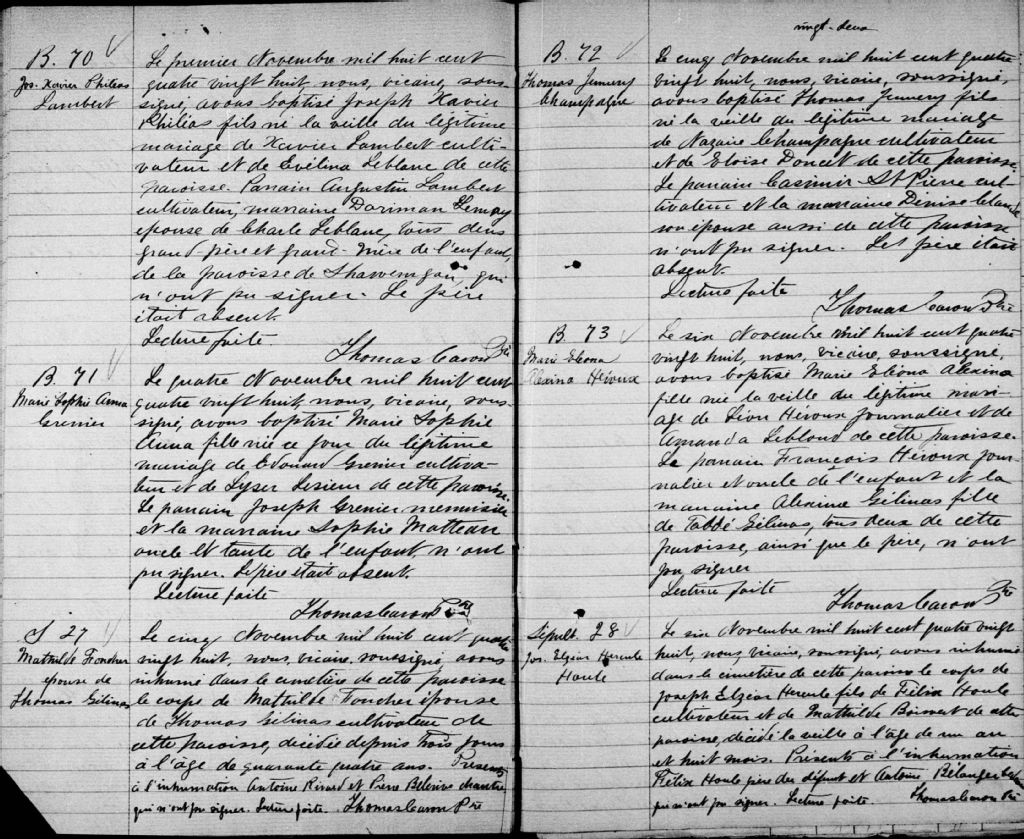 B. 70
Jos. Xavier Philias
Lambert
Le premier Novembre mil huit cent
quatre vingt huit, nous, vicaire, sous-
signé, avons baptisé Joseph Xavier
Philias fils né la veille du légitime
mariage de Xavier Lambert culti-
vateur et de Evélina Leblanc de cette
paroisse. Parrain Augustin Lambert
cultivateur, marraine Dariman Lemay
épouse de Charle Leblanc, tous deux
grand-père et grand-mère de l'enfant,
de la paroisse de Shawenigan, qui
n'ont pu signer. Le père
était absent.
Lecture faite.
Thomas Caron Ptre
B. 71
Marie Sophie Anna
Grenier
Le quatre Novembre mil huit cent
quatre vingt huit, nous, vicaire, sous-
signé, avons baptisé Marie Sophie
Anna fille née ce jour du légitime
mariage de Edouard Grenier cultiva-
teur et de Lyser Lesieur de cette paroisse.
Le parrain Joseph Grenier menuisier
et la marraine Sophie Matteau
oncle et tante de l'enfant n'ont
pu signer. Le père était absent.
Lecture faite
Thomas Caron Ptre
S 27
Mathilde Foucher
épouse de
Thomas Gélinas
Le cinq Novembre mil huit cent quatre
vingt huit, nous, vicaire, soussigné, avons
inhumé dans le cimetière de cette paroisse
le corps de Mathilde Foucher épouse
de Thomas Gélinas cultivateur de
cette paroisse, décédée depuis trois jours
à l'âge de quarante quatre ans. Présents
à l'inhumation Antoine Rivard et Pierre chantre
qui n'ont pu signer. Lecture faite. Thomas Caron Ptre
vingt-deux
B. 72
Thomas Jumery
Champagne
Le cinq Novembre mil huit cent quatre
vingt huit, nous, vicaire, soussigné,
avons baptisé Thomas Jumery fils
né la veille du légitime mariage
de Nazaire Champagne cultivateur
et de Eloise Doucet de cette paroisse.
Le parrain Casimir St Pierre cul-
tivateur et la marraine Denise
son épouse aussi de cette paroisse
n'ont pu signer. Le père était
absent.
Lecture faite
Thomas Caron Ptre
B. 73
Marie Eliona
Alexina Héroux
Le six Novembre mil huit cent quatre
vingt huit, nous, vicaire, soussigné,
avons baptisé Marie Eliona Alexina
fille née la veille du légitime mari-
age de Léon Héroux journalier et de
Amanda Leblond de cette paroisse.
Le parrain François Héroux jour-
nalier et oncle de l'enfant et la
marraine Alexina Gélinas fille
de Taddé Gélinas, tous deux de cette
paroisse, ainsi que le père, n'ont
pu signer
Lecture faite
Thomas Caron Ptre
Sépult. 28
Jos. Elzéar Hercule
Houle
Le six Novembre mil huit cent quatre vingt
huit, nous, vicaire, soussigné, avons inhumé
dans le cimetière de cette paroisse le corps de
Joseph Elzéar Hercule fils de Félix Houle
cultivateur et de Mathilde Boisvert de cette
paroisse, décédé la veille à l'âge de un an
et huit mois. Présents à l'inhumation
Félix Houle père du défunt et Antoine Bélanger
qui n'ont pu signer. Lecture faite. Thomas Caron Ptre